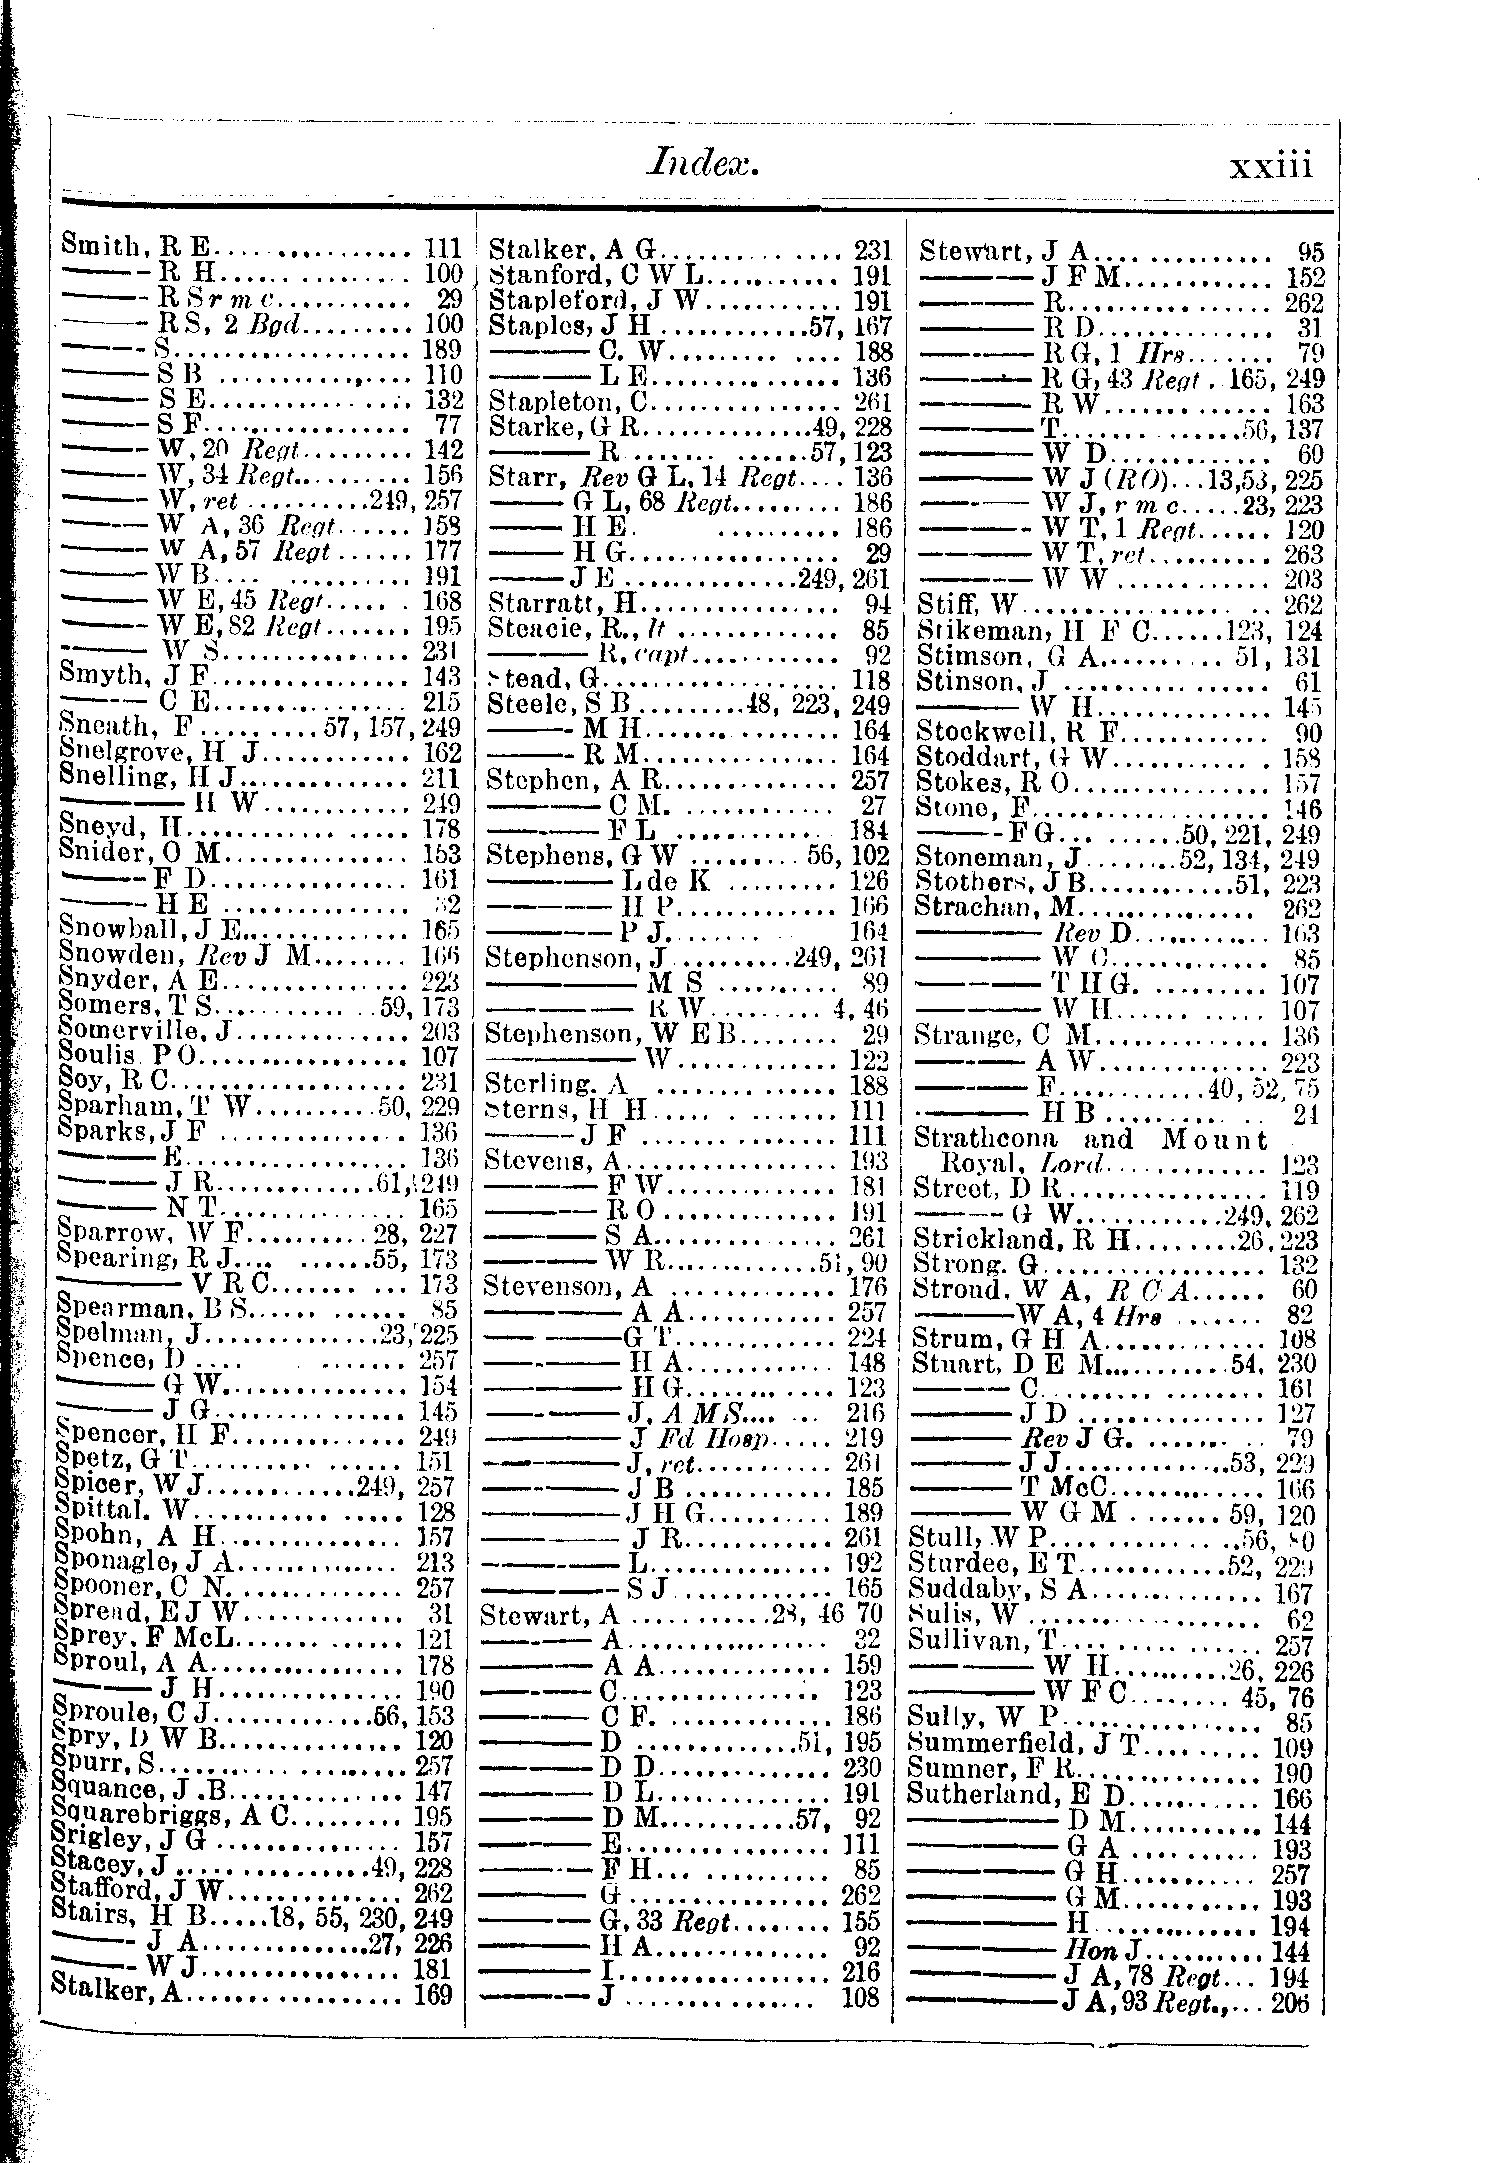 Index.
xxiii
Smith, R E................ 111
——— R H............... 100
——— R S r m c........... 29
——— R S, 2 Bgd......... 100
——— S................... 189
——— S B ................ 110
——— S E................ 132
——— S F................. 77
——— W, 20 Regt......... 142
——— W, 34 Regt.......... 156
——— W, ret ..........249, 257
——— W A, 36 Regt...... 158
——— W A, 57 Regt ...... 177
——— W B.... .......... 191
——— W E, 45 Regt...... . 168
——— W E, 82 Regt....... 195
——— W S................ 231
Smyth, J F................ 143
——— C E................ 215
Sneath, F ..........57, 157, 249
Snelgrove, H J............ 162
Snelling, H J.............. 211
——— H W............ 249
Sneyd, H.................. 178
Snider, O M............... 153
——— F D................ 161
——— H E ............... 32
Snowball, J E............. 165
Snowden, Rev J M........ 166
Snyder, A E............... 223
Somers, T S.............59, 173
Somerville, J.............. 203
Soulis P O................. 107
Soy, R C................... 231
Sparham, T W..........50, 229
Sparks, J F ............... 136
——— E.................. 136
——— J R.............61, 249
——— N T............... 165
Sparrow, W F..........28, 227
Spearing, R J.... ......55, 173
——— V R C...... ... 173
Spearman, B S...... ...... 85
Spelman, J..............23, 225
Spence, D .... ....... 257
——— G W............... 154
——— J G................ 145
Spencer, H F.............. 249
Spetz, G T.......... ...... 151
Spicer, W J............249, 257
Spittal. W........... ..... 128
Spohn, A H............... 157
Sponagle, J A............. 213
Spooner, C N. ............ 257
Spread, E J W............. 31
Sprey, F McL....... ...... 121
Sproul, A A................ 178
——— J H............... 190
Sproule, C J.............56, 153
Spry, D W B............... 120
Spurr, S.................... 257
Squance, J .B.............. 147
Squarebriggs, A C......... 195
Srigley, J G ............... 157
Stacey, J ................49, 228
Stafford, J W.............. 262
Stairs, H B.....18, 55, 230, 249
——— J A..............27, 226
——— W J................ 181
Stalker, A.................. 169
Stalker, A G............... 231
Stanford, C W L........... 191
Stapleford, J W........... 191
Staples, J H ............57, 167
——— C. W......... .... 188
——— L E............... 136
Stapleton, C............... 261
Starke, G R..............49, 228
——— R ....... ......57, 123
Starr, Rev G L, 14 Regt.... 136
——— G L, 68 Regt......... 186
——— H E. .......... 186
——— H G................. 29
——— J E ..............249, 261
Starratt, H................ 94
Steacie, R., lt ............. 85
——— R, capt............ 92
Stead, G................... 118
Steele, S B .........48, 223, 249
——— M H............... 164
——— R M............... 164
Stephen, A R.............. 257
——— C M. ............ 27
——— F L ............. 184
Stephens, G W ......... 56, 102
——— L de K ......... 126
——— H P............. 166
——— P J....... . 164
Stephenson, J ..........249, 261
——— M S .......... 89
——— R W.......... 4, 46
Stephenson, W E B........ 29
——— W............. 122
Sterling. A ............... 188
Sterns, H H..... . ....... 111
——— J F ............... 111
Stevens, A................. 193
——— F W.............. 181
——— R O.............. 191
——— S A.............. 261
——— W R............51, 90
Stevenson, A ............. 176
——— A A............ 257
——— G T............. 224
——— H A............ 148
——— H G....... .... 123
——— J, A M S.... ... 216
——— J Fd Hosp..... 219
——— J, ret............ 261
——— J B ............ 185
——— J H G.......... 189
——— J R............ 261
——— L.............. 192
——— S J ............ 165
Stewart, A ...........28, 46 70
——— A................. 32
——— A A.............. 159
——— C................ 123
——— C F. ............. 186
——— D .............51, 195
——— D D.............. 230
——— D L.............. 191
——— D M...........57, 92
——— E................. 111
——— F H... .......... 85
——— G ................ 262
——— G, 33 Regt........ 155
——— H A.............. 92
——— I................. 216
——— J ............... 108
Stewart, J A............... 95
——— J F M............ 152
——— R................ 262
——— R D.............. 31
——— R G, 1 Hrs....... 79
——— R G, 43 Regt . 165, 249
——— R W............. 163
——— T. ..............56, 137
——— W D............. 60
——— W J (RO)...13,53, 225
——— W J, r m c.....23, 223
——— W T, 1 Regt...... 120
——— W T, ret.......... 263
——— W W ............ 203
Stiff, W................. .. 262
Stikeman, H F C......123, 124
Stimson, G A.......... 51, 131
Stinson, J ................. 61
——— W H............. 145
Stockwell, R F............ 90
Stoddart, G W........... . 158
Stokes, R O................ 157
Stone, F................... 146
——— F G... ......50, 221, 249
Stoneman, J........52, 134, 249
Stothers, J B.............51, 223
Strachan, M............... 262
——— Rev D........... 163
——— W C............. 85
——— T H G. ......... 107
——— W H...... ..... 107
Strange, C M.............. 136
——— A W............. 223
——— F............40, 52, 75
——— H B .......... .. 24
Strathcona and Mount
Royal, Lord............. 123
Street, D R................ 119
——— G W............249, 262
Strickland, R H........26, 223
Strong. G.................. 132
Stroud, W A, R C A...... 60
——— W A, 4 Hrs ....... 82
Strum, G H A............. 108
Stuart, D E M...........54, 230
——— C......... ........ 161
——— J D ............... 127
——— Rev J G. ....... .. 79
——— J J..............53, 229
——— T McC............ 166
——— W G M ....... 59, 120
Stull, W P.... ...........56, 80
Sturdee, E T............52, 229
Suddaby, S A............. 167
Sulis, W .................. 62
Sullivan, T.......... ...... 257
——— W H..........26, 226
——— W F C........ 45, 76
Sully, W P................. 85
Summerfield, J T......... 109
Sumner, F R............... 190
Sutherland, E D........... 166
——— D M........... 144
——— G A .......... 193
——— G H........... 257
——— G M........... 193
——— H............. 194
——— Hon J.......... 144
——— J A, 78 Regt... 194
——— J A, 93 Regt.,... 206